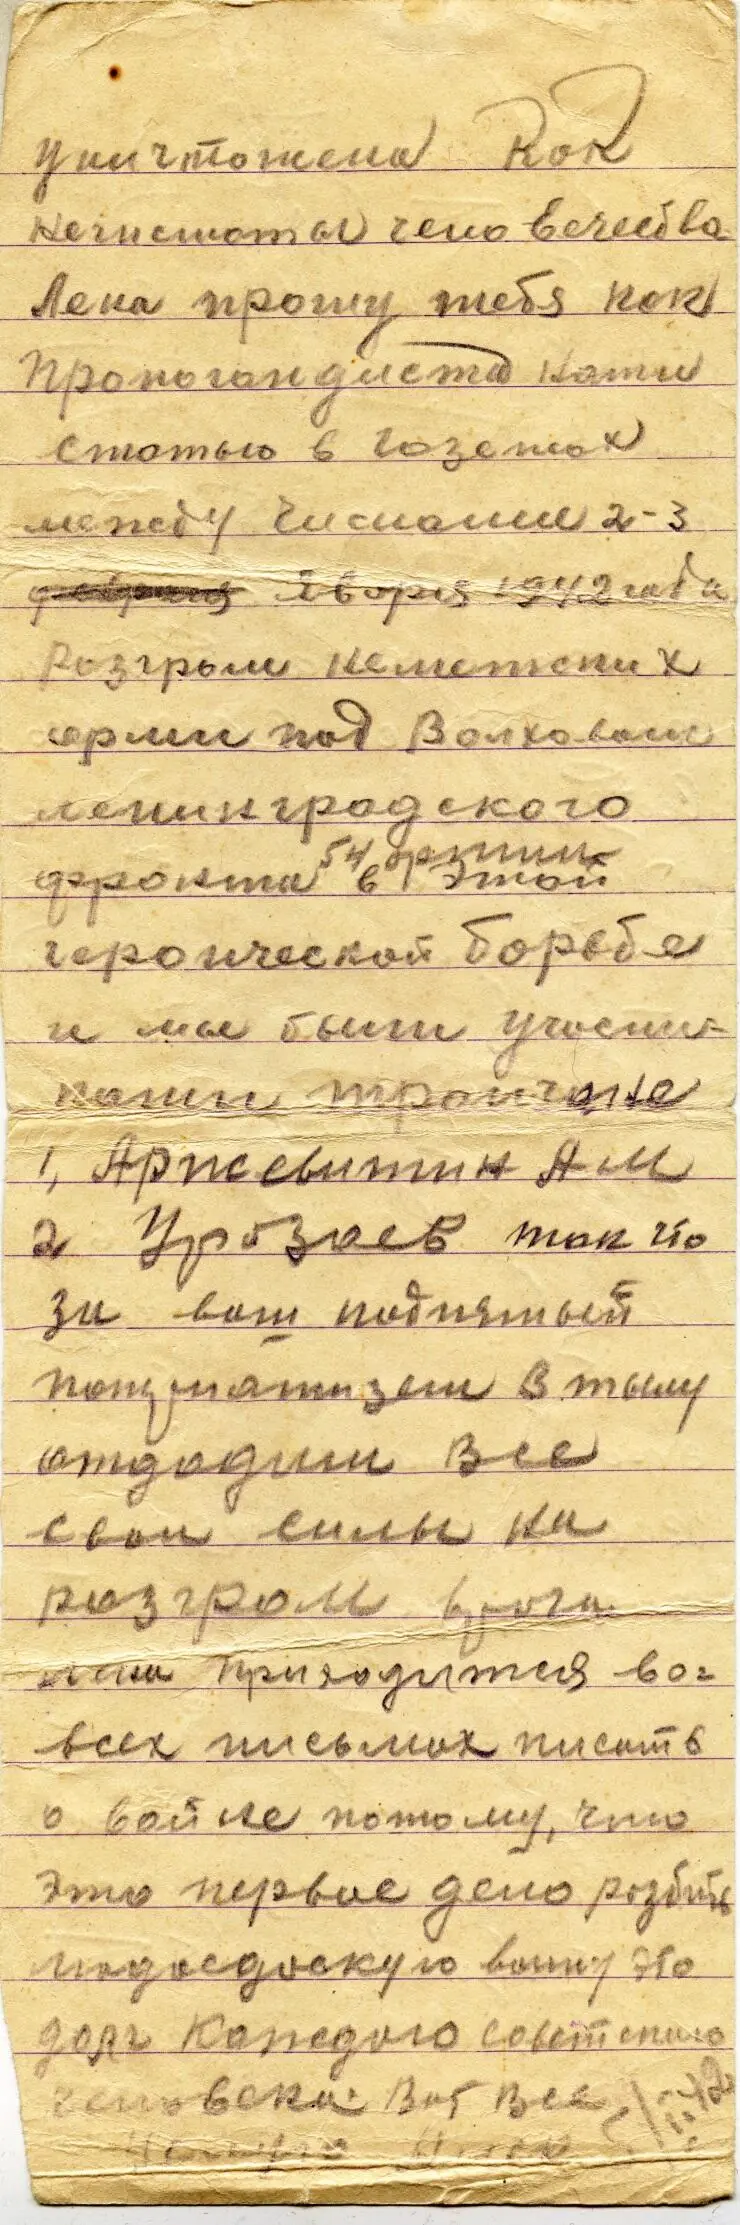 уничтожена как
нечистоты человечества
Лена прошу тебя как
пропогандиста найти
статью в газетах
между числами 2-3
февраля Января 1942 года
Розгром неметских
арми под Волховым
ленинградского
фронта 54 армии в этой
героической борьбе
и мы были участни-
ками
1, Аржевитин А М
2 Уразаев так что
за ваш поднятый
в тылу
отдадим все
свои силы на
розгром врага
Лена приходится во-
всех письмах писать
о войне потому, что
это первое дело розбить
людоедоскую это
долг Каждого советского
человека. Вот все